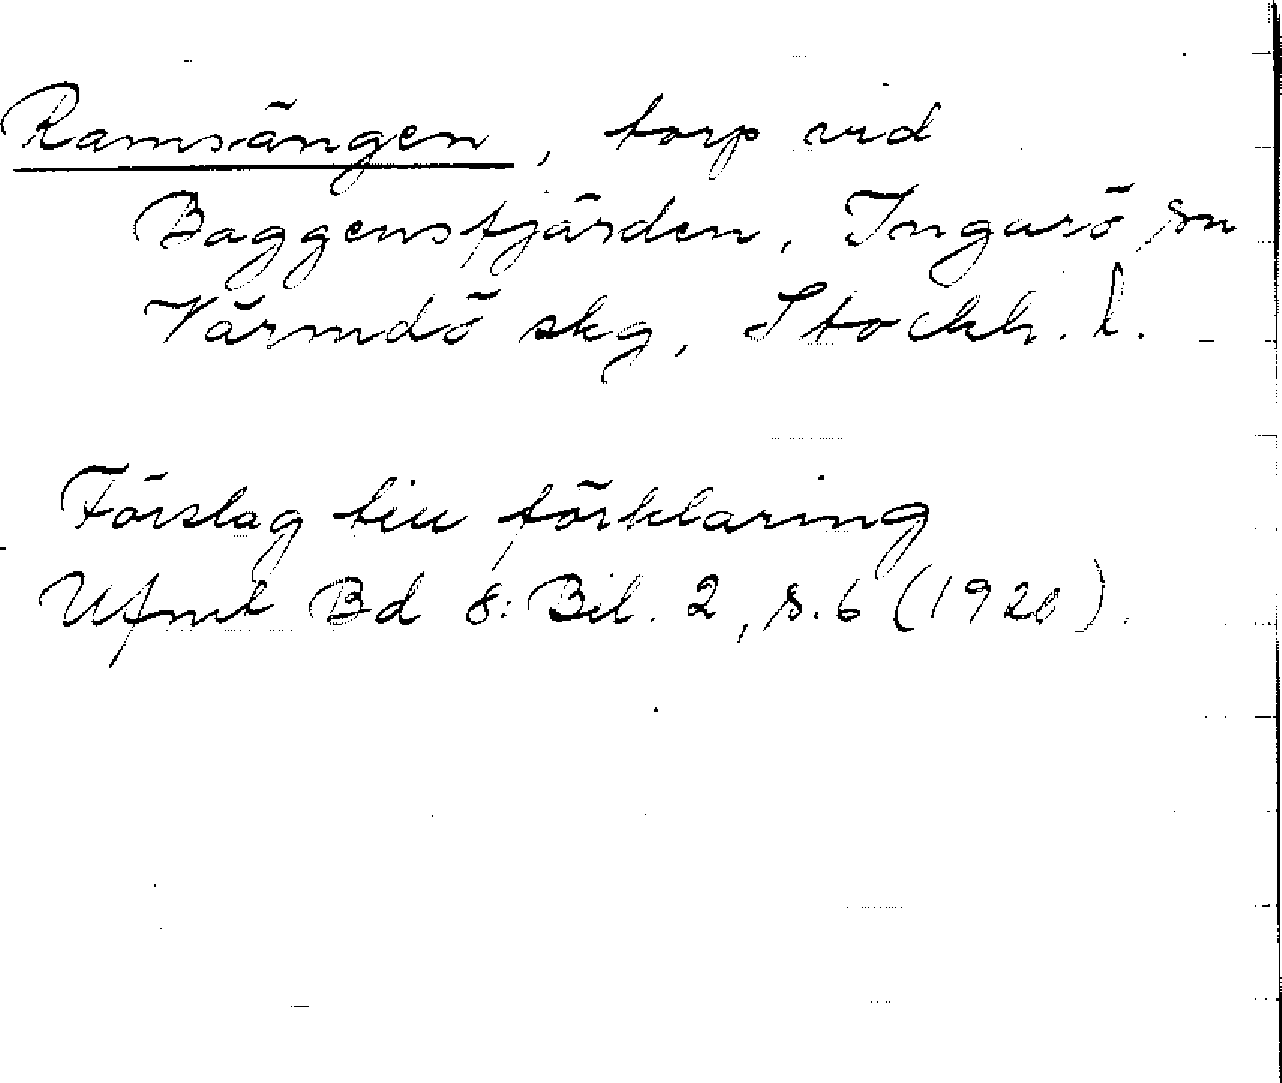 Ramsängen, torp vid
Baggensfjärden, Ingarö sn
Värmdö skg, Stockh. l.
Förslag till förklaring
Ufmt Bd 8: Bil. 2, s. 6 (1920).